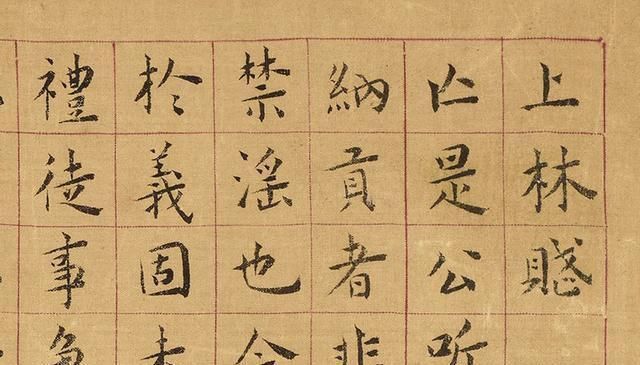 上林賦
亡是公听
納貢者非
禁滛也今
於義固未
禮徒事争